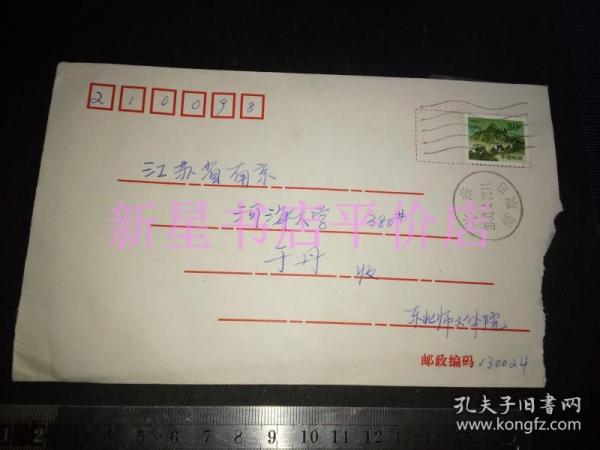 210098
80分
中国邮政
江苏省南京
河海大学 380#
新星书店平价店
于丹 收
东北师大体院
邮政编码 130024
孔夫子旧书网
www.kongfz.com
1 2 3 4 5 6 7 8 9 10 11 12 13 14 15